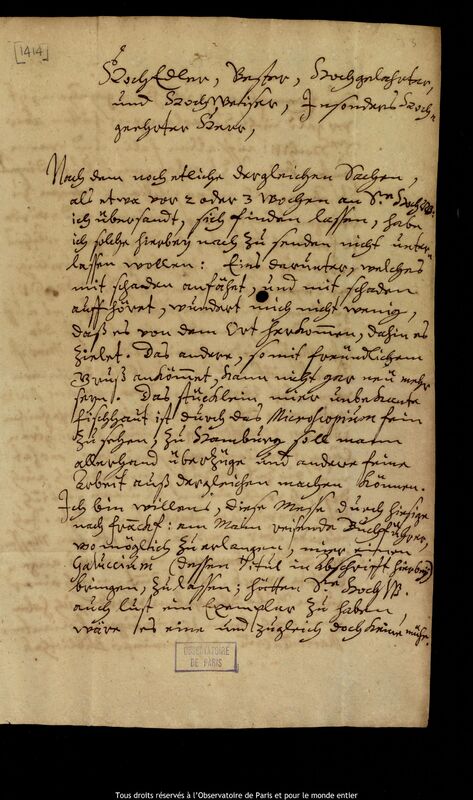 [1414]
HochEdler, Vester, Hochgelahrter,
und HochWeiser, Insonders Hoch-
geehrter Herr,
Nach dem noch etliche dergleichen Sachen,
als etwa vor 2 oder 3 Wochen an Sr. HochW.
ich übersandt, sich finden lassen, habe
ich solche hierbey nach zu senden nicht unter-
lassen wollen: Eins darunter, welches
mit schaden anfähet, und mit schaden
auffhöret, wundert mich nicht wenig,
daß es von dem Ort herkommen, dahin es
zielet. Das andere, so mit freündlichem
Gruß ankömmet, kann nicht gar neü mehr
seyn. Das stücklein mier unbekante
fischhaut ist durch das Microscopium fein
zu sehen, zu Hamburg soll mann
allerhand überzüge und andere feine
Arbeit auß dergleichen machen können.
Ich bin willens, diese Messe durch hiesige
nach Franckf: am Mayn reisende Buchführer,
wo möglich zu erlangen, mier einen
Galuccium (dessen Titul in abschrifft hierbey)
bringen zu lassen; hätten Sr. HochW.
auch lust ein Exemplar zu haben,
wäre es eine und zugleich doch keine mühe.
OBSERVATOIRE
DE PARIS
Tous droits réservés à l'Observatoire de Paris et pour le monde entier